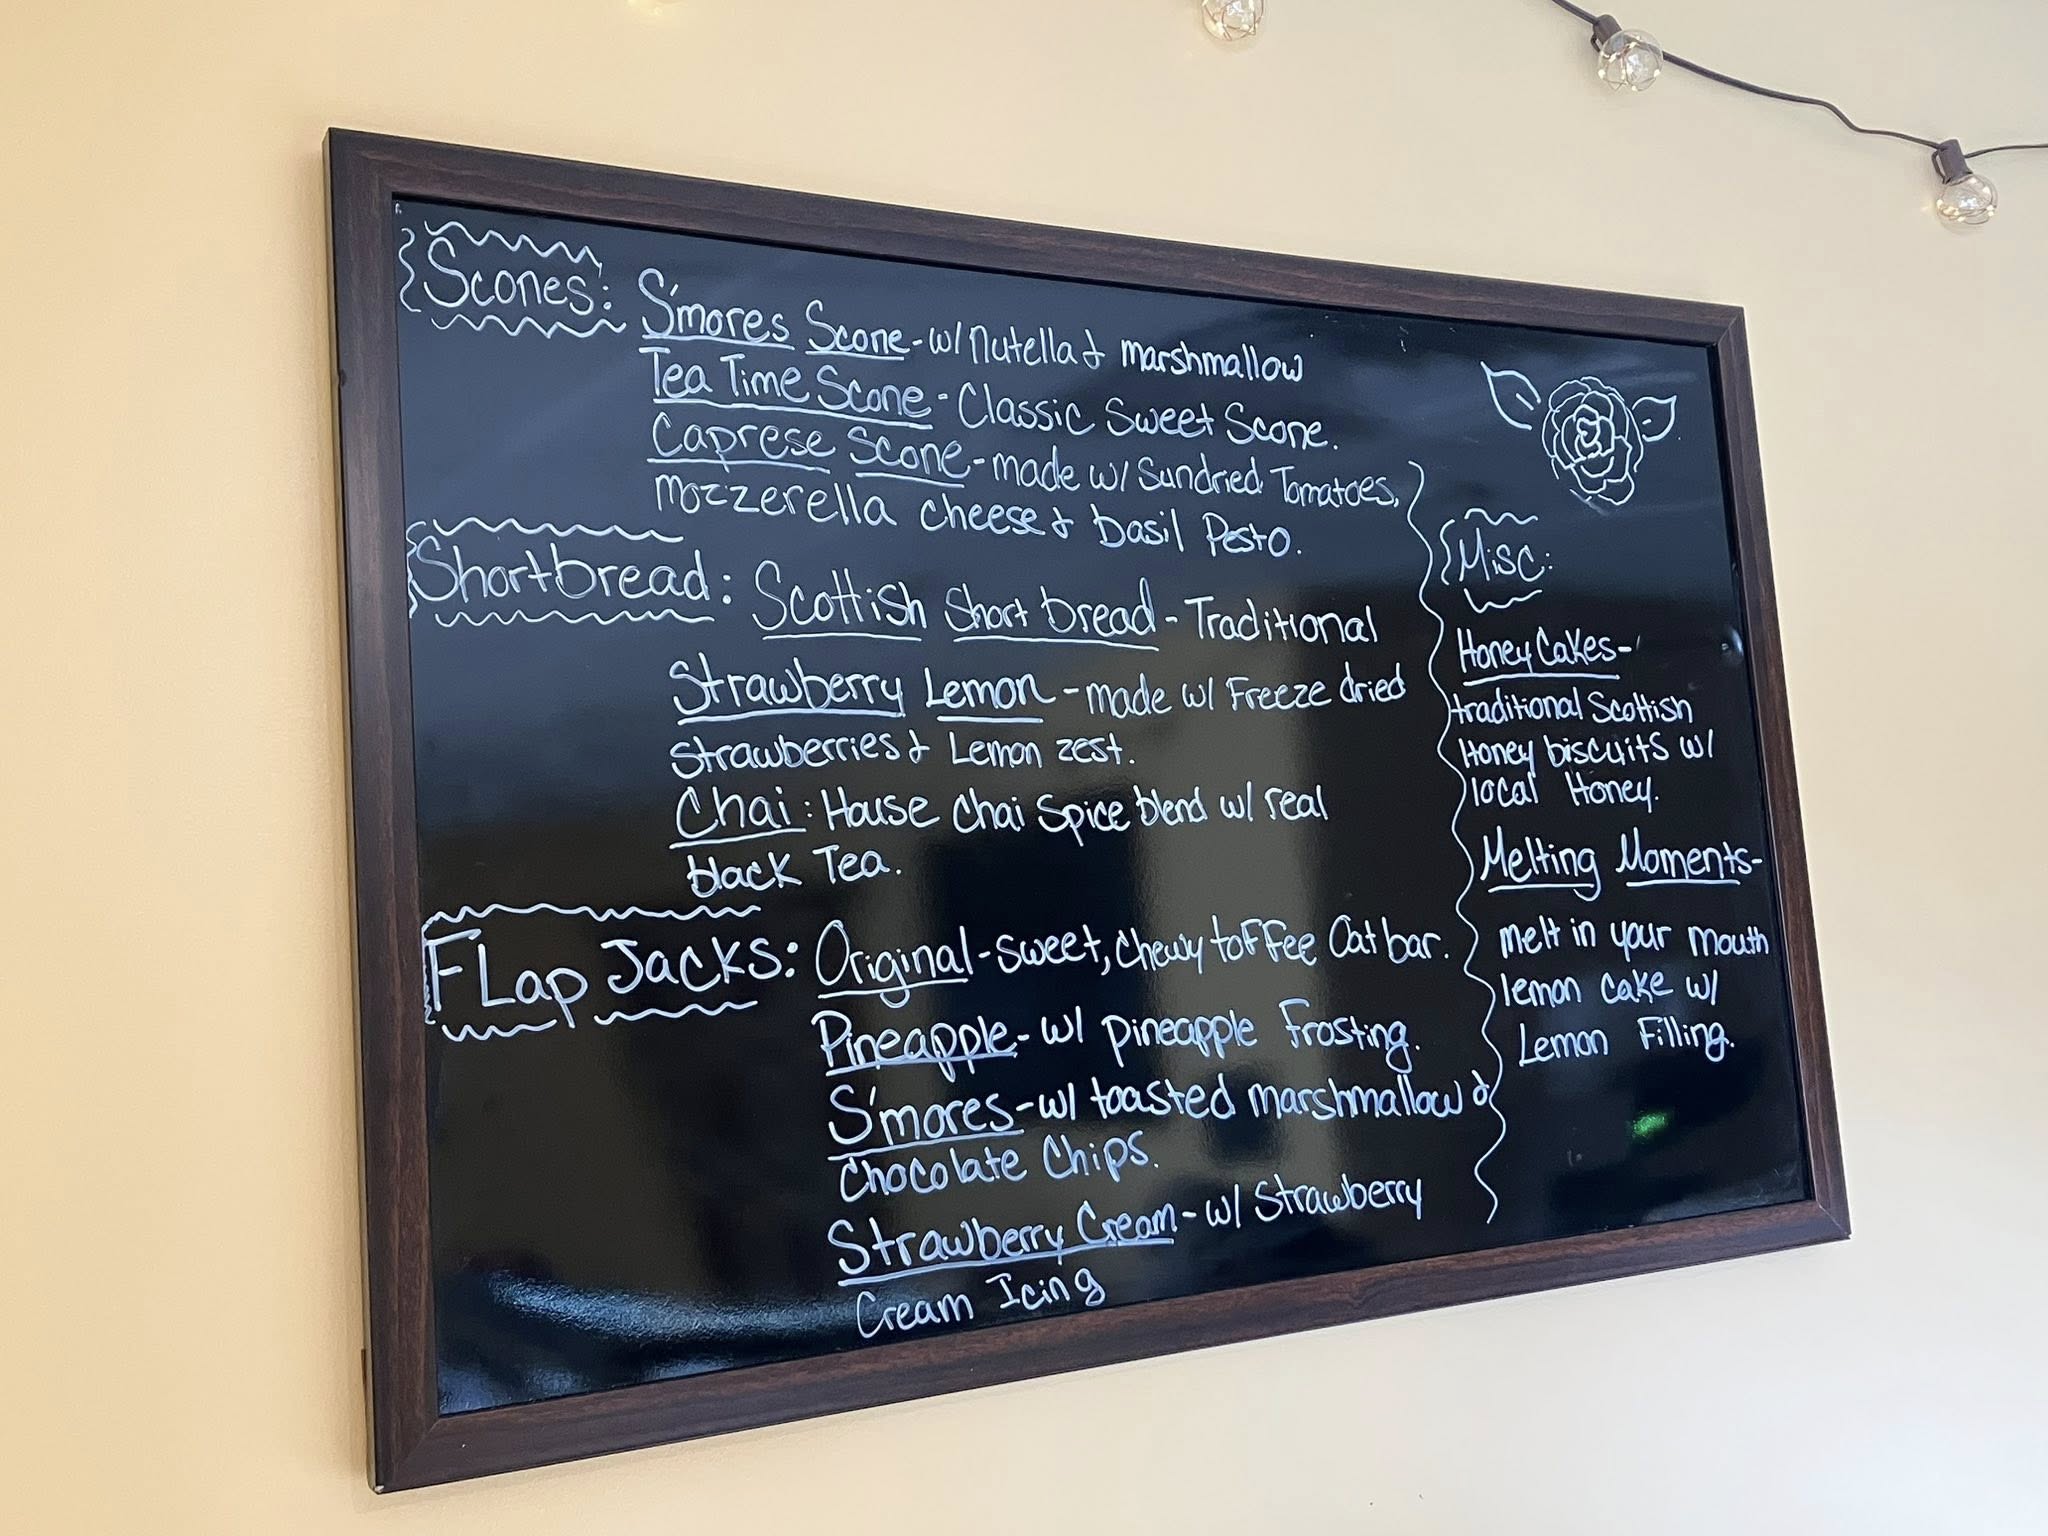 Scones: S'mores Scone - w/ Nutella & marshmallow
Tea Time Scone - Classic Sweet Scone.
Caprese Scone - made w/ Sundried Tomatoes,
mozzerella cheese & basil Pesto.
Shortbread: Scottish Short bread - Traditional
Strawberry Lemon - made w/ Freeze dried
strawberries & Lemon zest.
Chai: House Chai Spice blend w/ real
black Tea.
FLap JACKS: Original - sweet, chewy toffee Oat bar.
Pineapple - w/ pineapple Frosting.
S'mores - w/ toasted marshmallow &
Chocolate Chips.
Strawberry Cream - w/ Strawberry
Cream Icing
Misc:
Honey Cakes -
traditional Scottish
Honey biscuits w/
local Honey.
Melting Moments -
melt in your mouth
lemon cake w/
Lemon Filling.